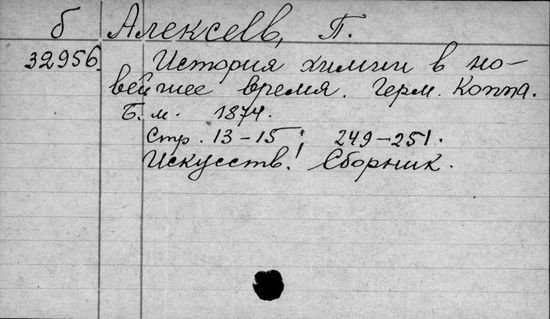 б Алексеев, П.
32956. История химии в но-
вейшее время. Герм. Коппа.
Б. м. 1874.
Стр. 13-15; 249-251.
Искусств. Сборник.